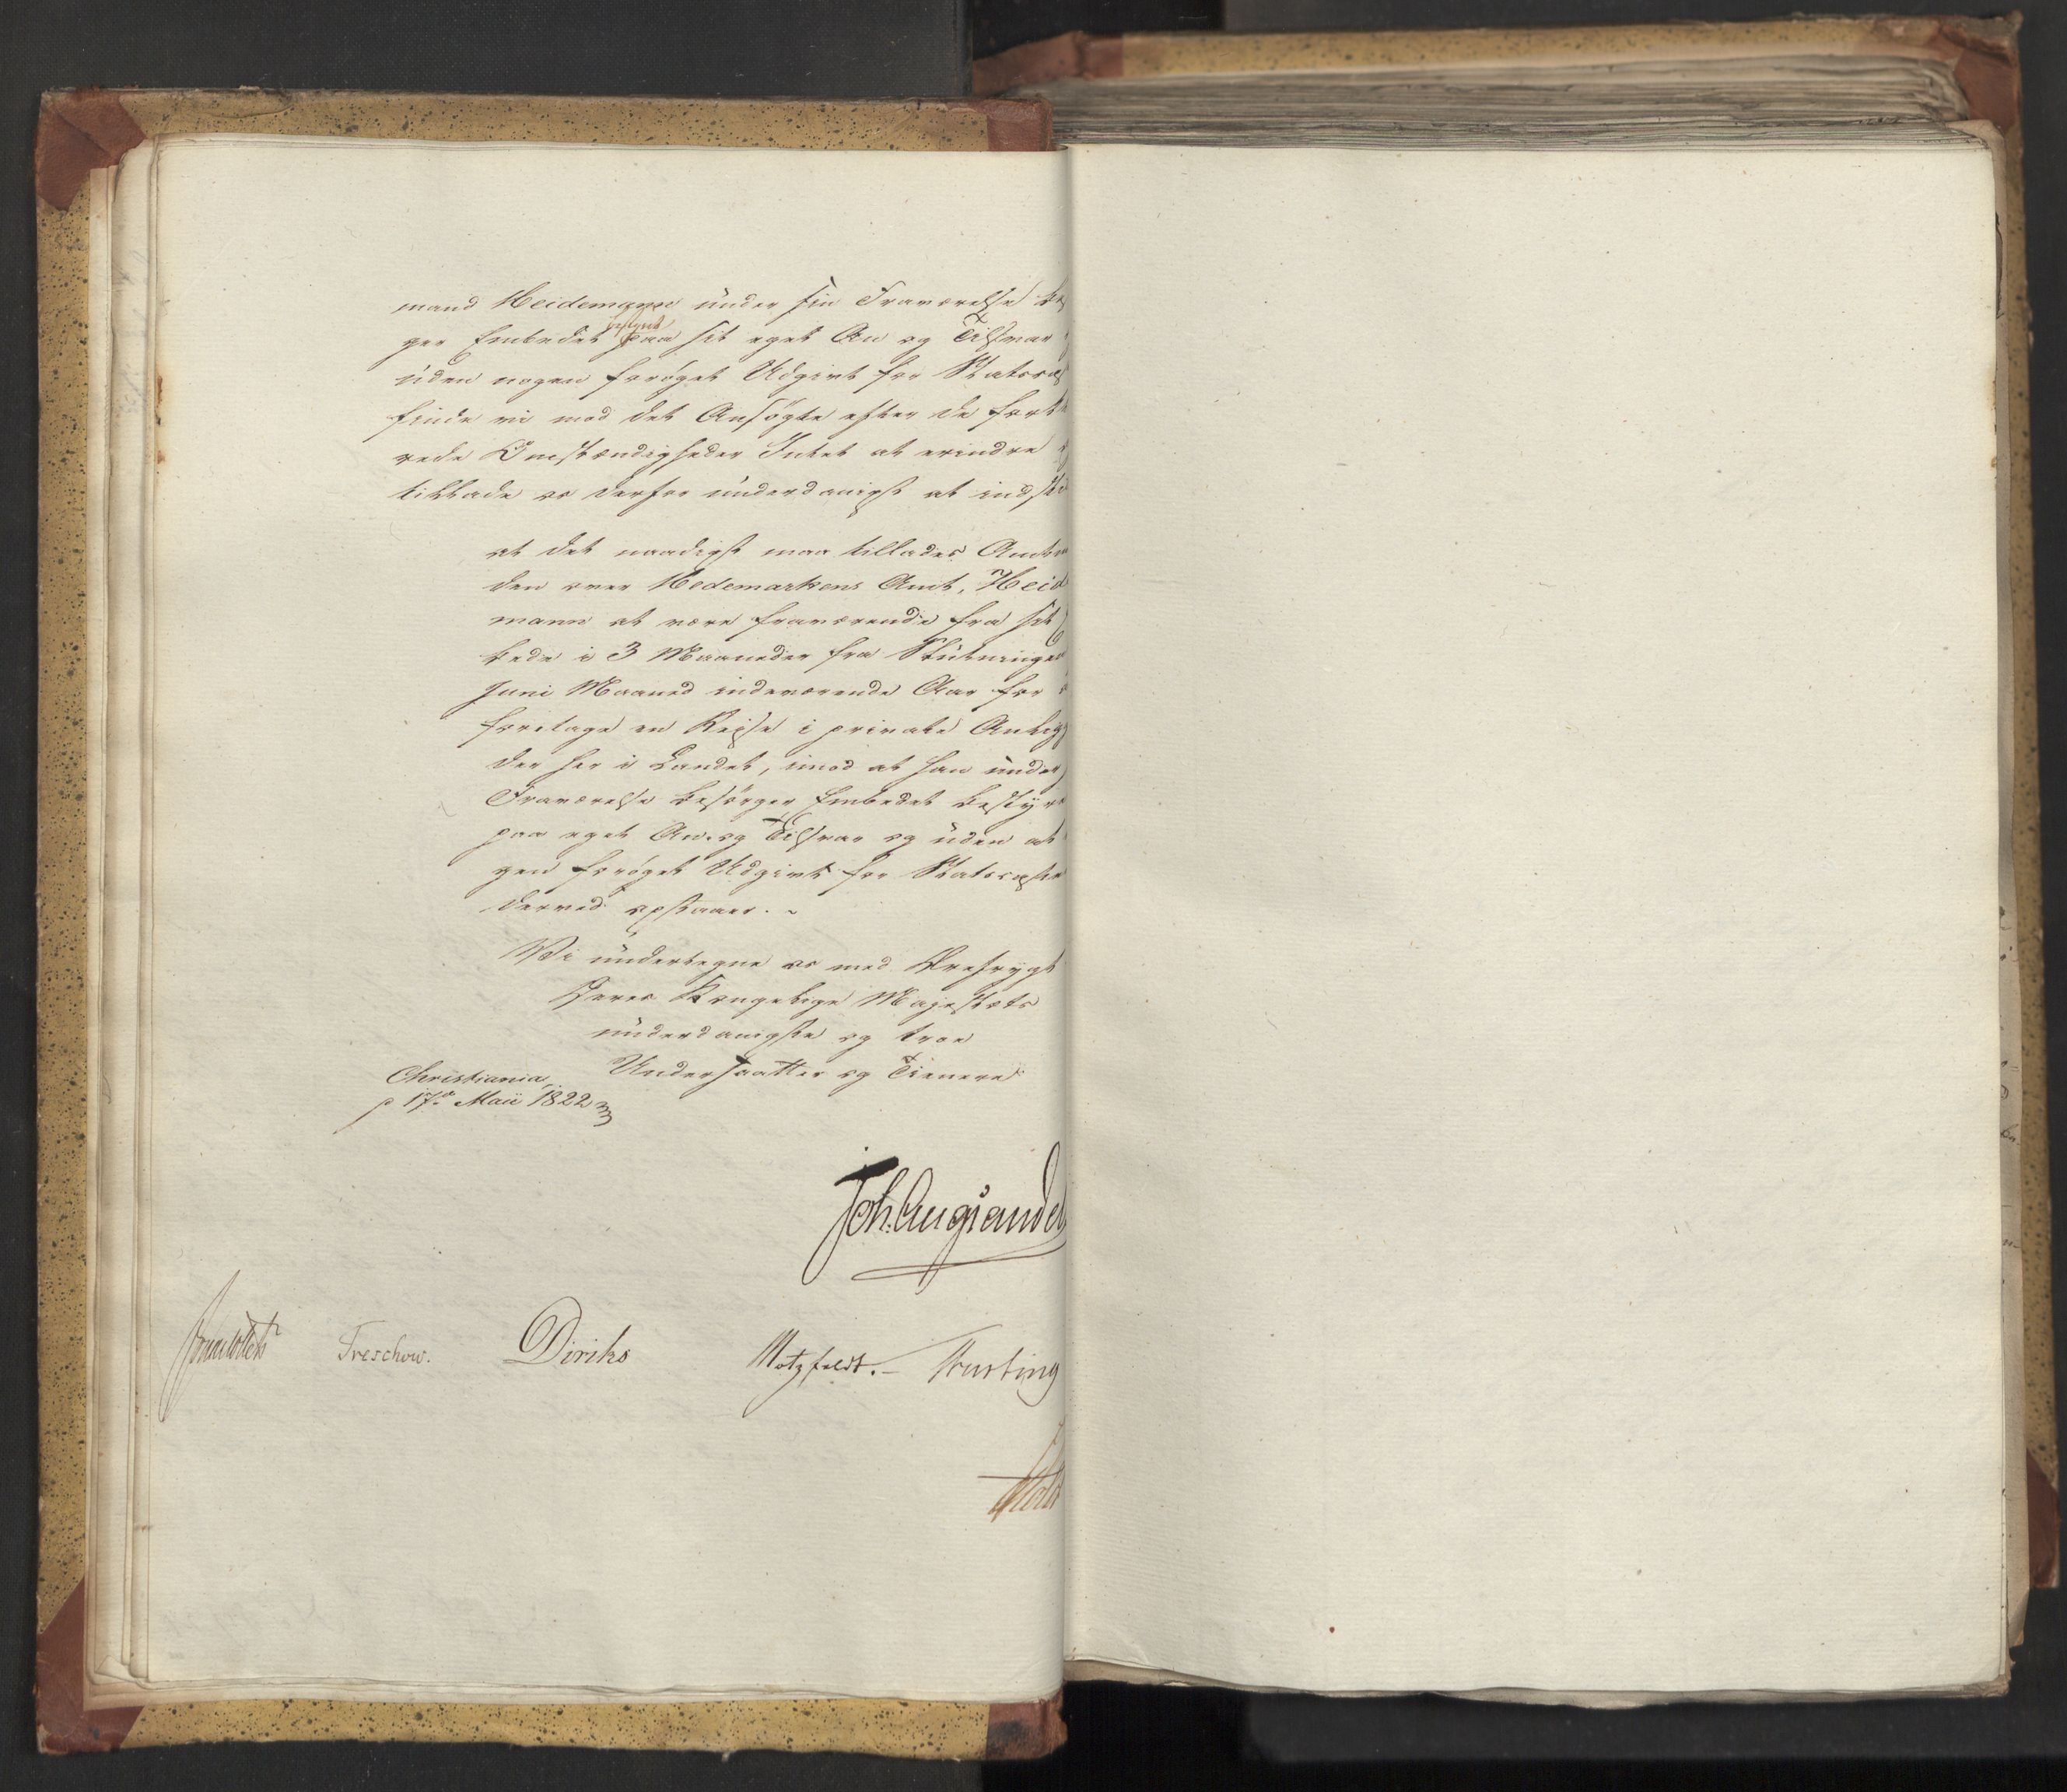 mand Heidemann under sin Fraværelse bes
ger Embedet paa sit eget An og Tilsvar
bestyret
uden nogen forøget Udgivt for Statscas
finde vi mod det Ansøgte efter de fort
rede Omstændigheder Intet at erindre
tillade os derfor underdanigst at indst
at det naadigst maa tillades Amtm
den over Hedemarkens Amt, Heid
mann at være fraværende fra sit
bede i 3 Maaneder fra Slutningen
Juni Maaned indeværende Aar for
foretage en Reise i private Anlig
der her i Landet, imod at han under
Fraværelse besørger Embedet bestyr
paa eget An- og Tilsvar og uden at
gen forøget Udgivt for Statscassen
derved opstaaer. -
Vi undertegne os med Ærefrygt
Deres Kongelige Majestæts
underdanigste og troe
Undersaatter og Tienere
Christiania,
p 17de Maii 1822
Joh. Aug Sandel
Treschow. Diriks Motzfeldt. - Krusting
Holst